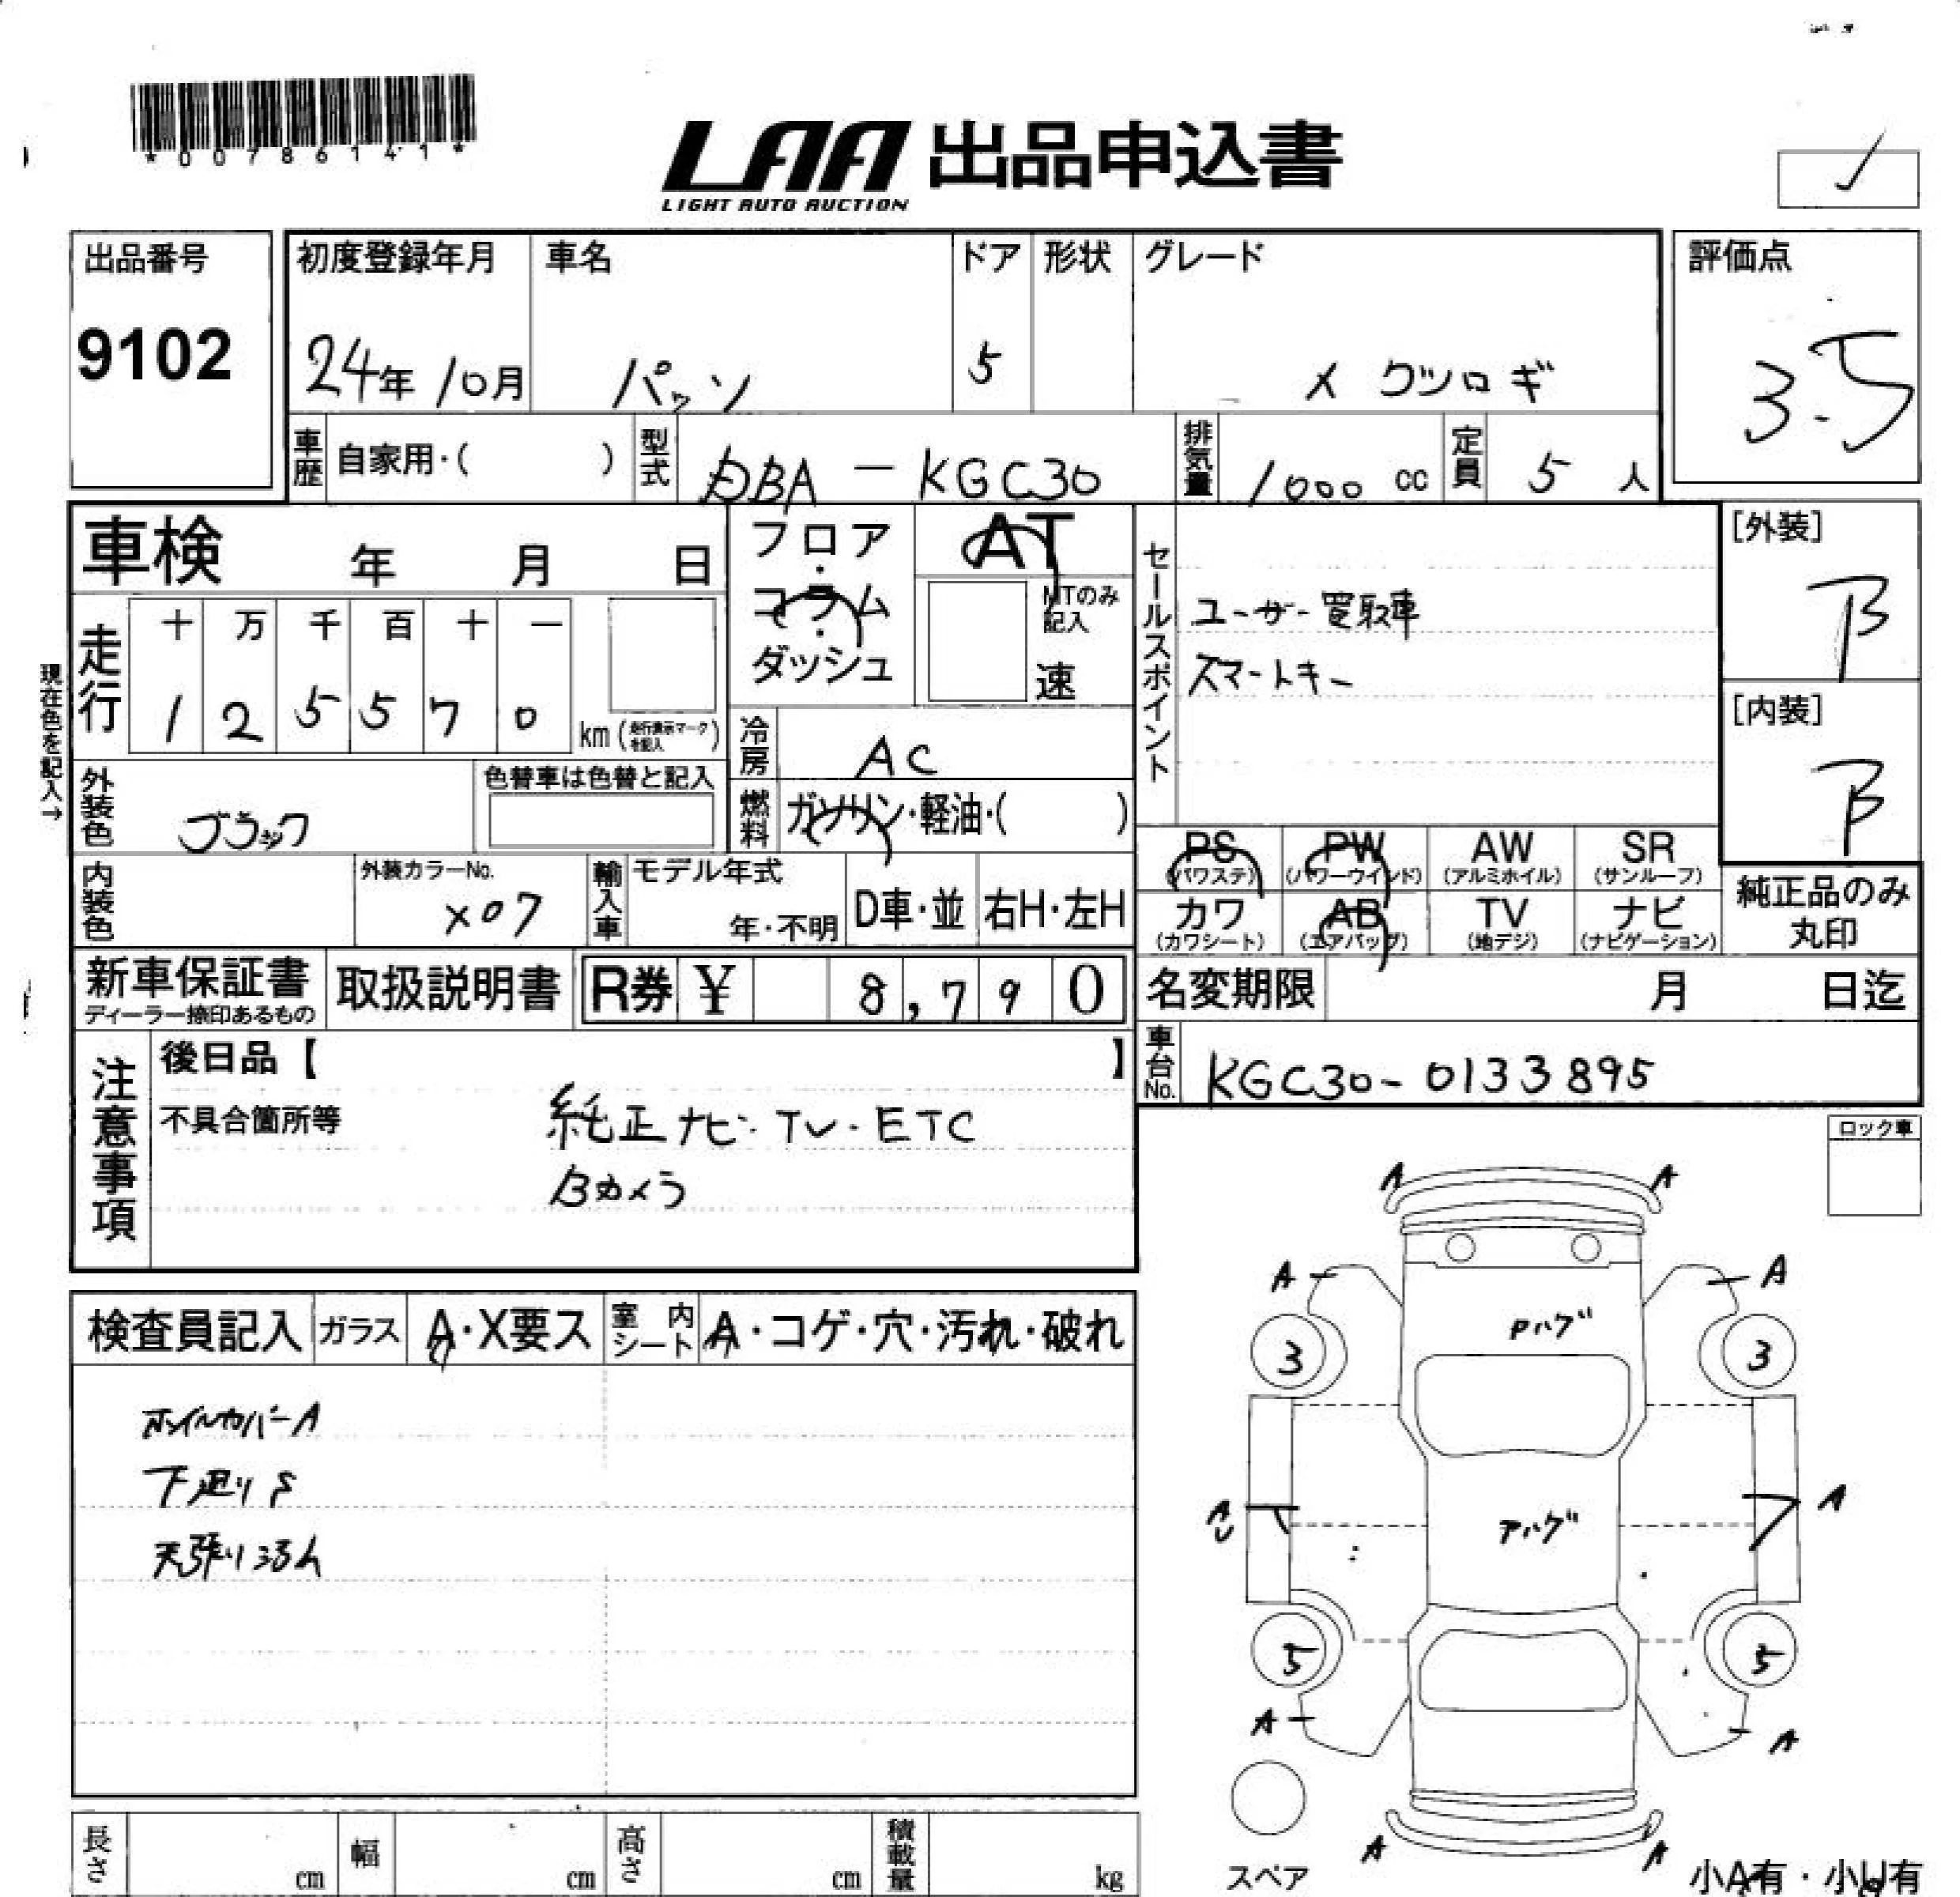 *00786141*
LAA 出品申込書
LIGHT AUTO AUCTION
出品番号
9102
初度登録年月
24年 10月
車名
パッソ
ドア
5
形状
グレード
X クツロギ
評価点
3.5
車歴 自家用・( )
型式 DBA - KGC30
排気量 1000 cc
定員 5 人
車検 年 月 日
現在色を記入→
走行
十 万 千 百 十 一
1 2 5 5 7 0
km (走行表示マークを記入)
フロア・コラム・ダッシュ
AT
MTのみ記入
速
冷房 AC
燃料 ガソリン・軽油・( )
セールスポイント
ユーザー買取車
スマートキー
[外装]
B
[内装]
B
外装色 ブラック
色替車は色替と記入
内装色
外装カラーNo.
X07
輸入車
モデル年式
年・不明
D車・並
右H・左H
PS (パワステ)
PW (パワーウインド)
AW (アルミホイル)
SR (サンルーフ)
カワ (カワシート)
AB (エアバッグ)
TV (地デジ)
ナビ (ナビゲーション)
純正品のみ丸印
新車保証書
ディーラー捺印あるもの
取扱説明書
R券 ¥ 8,790
名変期限 月 日迄
車台No. KGC30-0133895
注意事項
後日品【 】
不具合箇所等
純正ナビ・TV・ETC
Bカメラ
ロック車
検査員記入
ガラス A・X要ス
室内シート A・コゲ・穴・汚れ・破れ
ホイルカバーA
下廻りS
A A
A A
Pハゲ
3 3
AU A
Pハゲ
5 5
A A
A A
スペア
小A有・小U有
長さ cm
幅 cm
高さ cm
積載量 kg